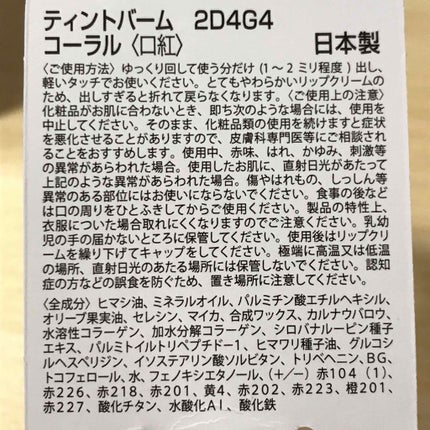 ティントバーム 2D4G4
コーラル〈口紅〉 日本製
〈ご使用方法〉ゆっくり回して使う分だけ(1〜2ミリ程度)出し、
軽いタッチでお使いください。とてもやわらかいリップクリームの
ため、出しすぎると折れて戻らなくなります。〈ご使用上の注意〉
化粧品がお肌に合わないとき、即ち次のような場合には、使用を
中止してください。そのまま、化粧品類の使用を続けますと症状
を悪化させることがありますので、皮膚科専門医等にご相談され
ることをおすすめします。使用中、赤味、はれ、かゆみ、刺激等
の異常があらわれた場合。使用したお肌に、直射日光があたって
上記のような異常があらわれた場合。傷やはれもの、しっしん等
異常のある部位にはお使いにならないでください。食事の後など
は口の周りをひとふきしてからご使用ください。製品の特性上、
衣服についた場合取れにくくなりますのでご注意ください。乳幼
児の手の届かないところに保管してください。使用後はリップクリー
ムを繰り下げてキャップをしてください。極端に高温又は低温
の場所、直射日光のあたる場所には保管しないでください。認知
症の方などの誤食を防ぐため、置き場所に注意してください。
〈全成分〉ヒマシ油、ミネラルオイル、パルミチン酸エチルヘキシル、
オリーブ果実油、セレシン、マイカ、合成ワックス、カルナウバロウ、
水溶性コラーゲン、加水分解コラーゲン、シロバナルーピン種子
エキス、パルミトイルトリペプチド-1、ヒマワリ種子油、グルコシ
ルヘスペリジン、イソステアリン酸ソルビタン、トリベヘニン、BG、
トコフェロール、水、フェノキシエタノール、(+/-)赤104(1)、
赤226、赤218、赤201、黄4、赤202、赤223、橙201、
赤227、酸化チタン、水酸化Al、酸化鉄